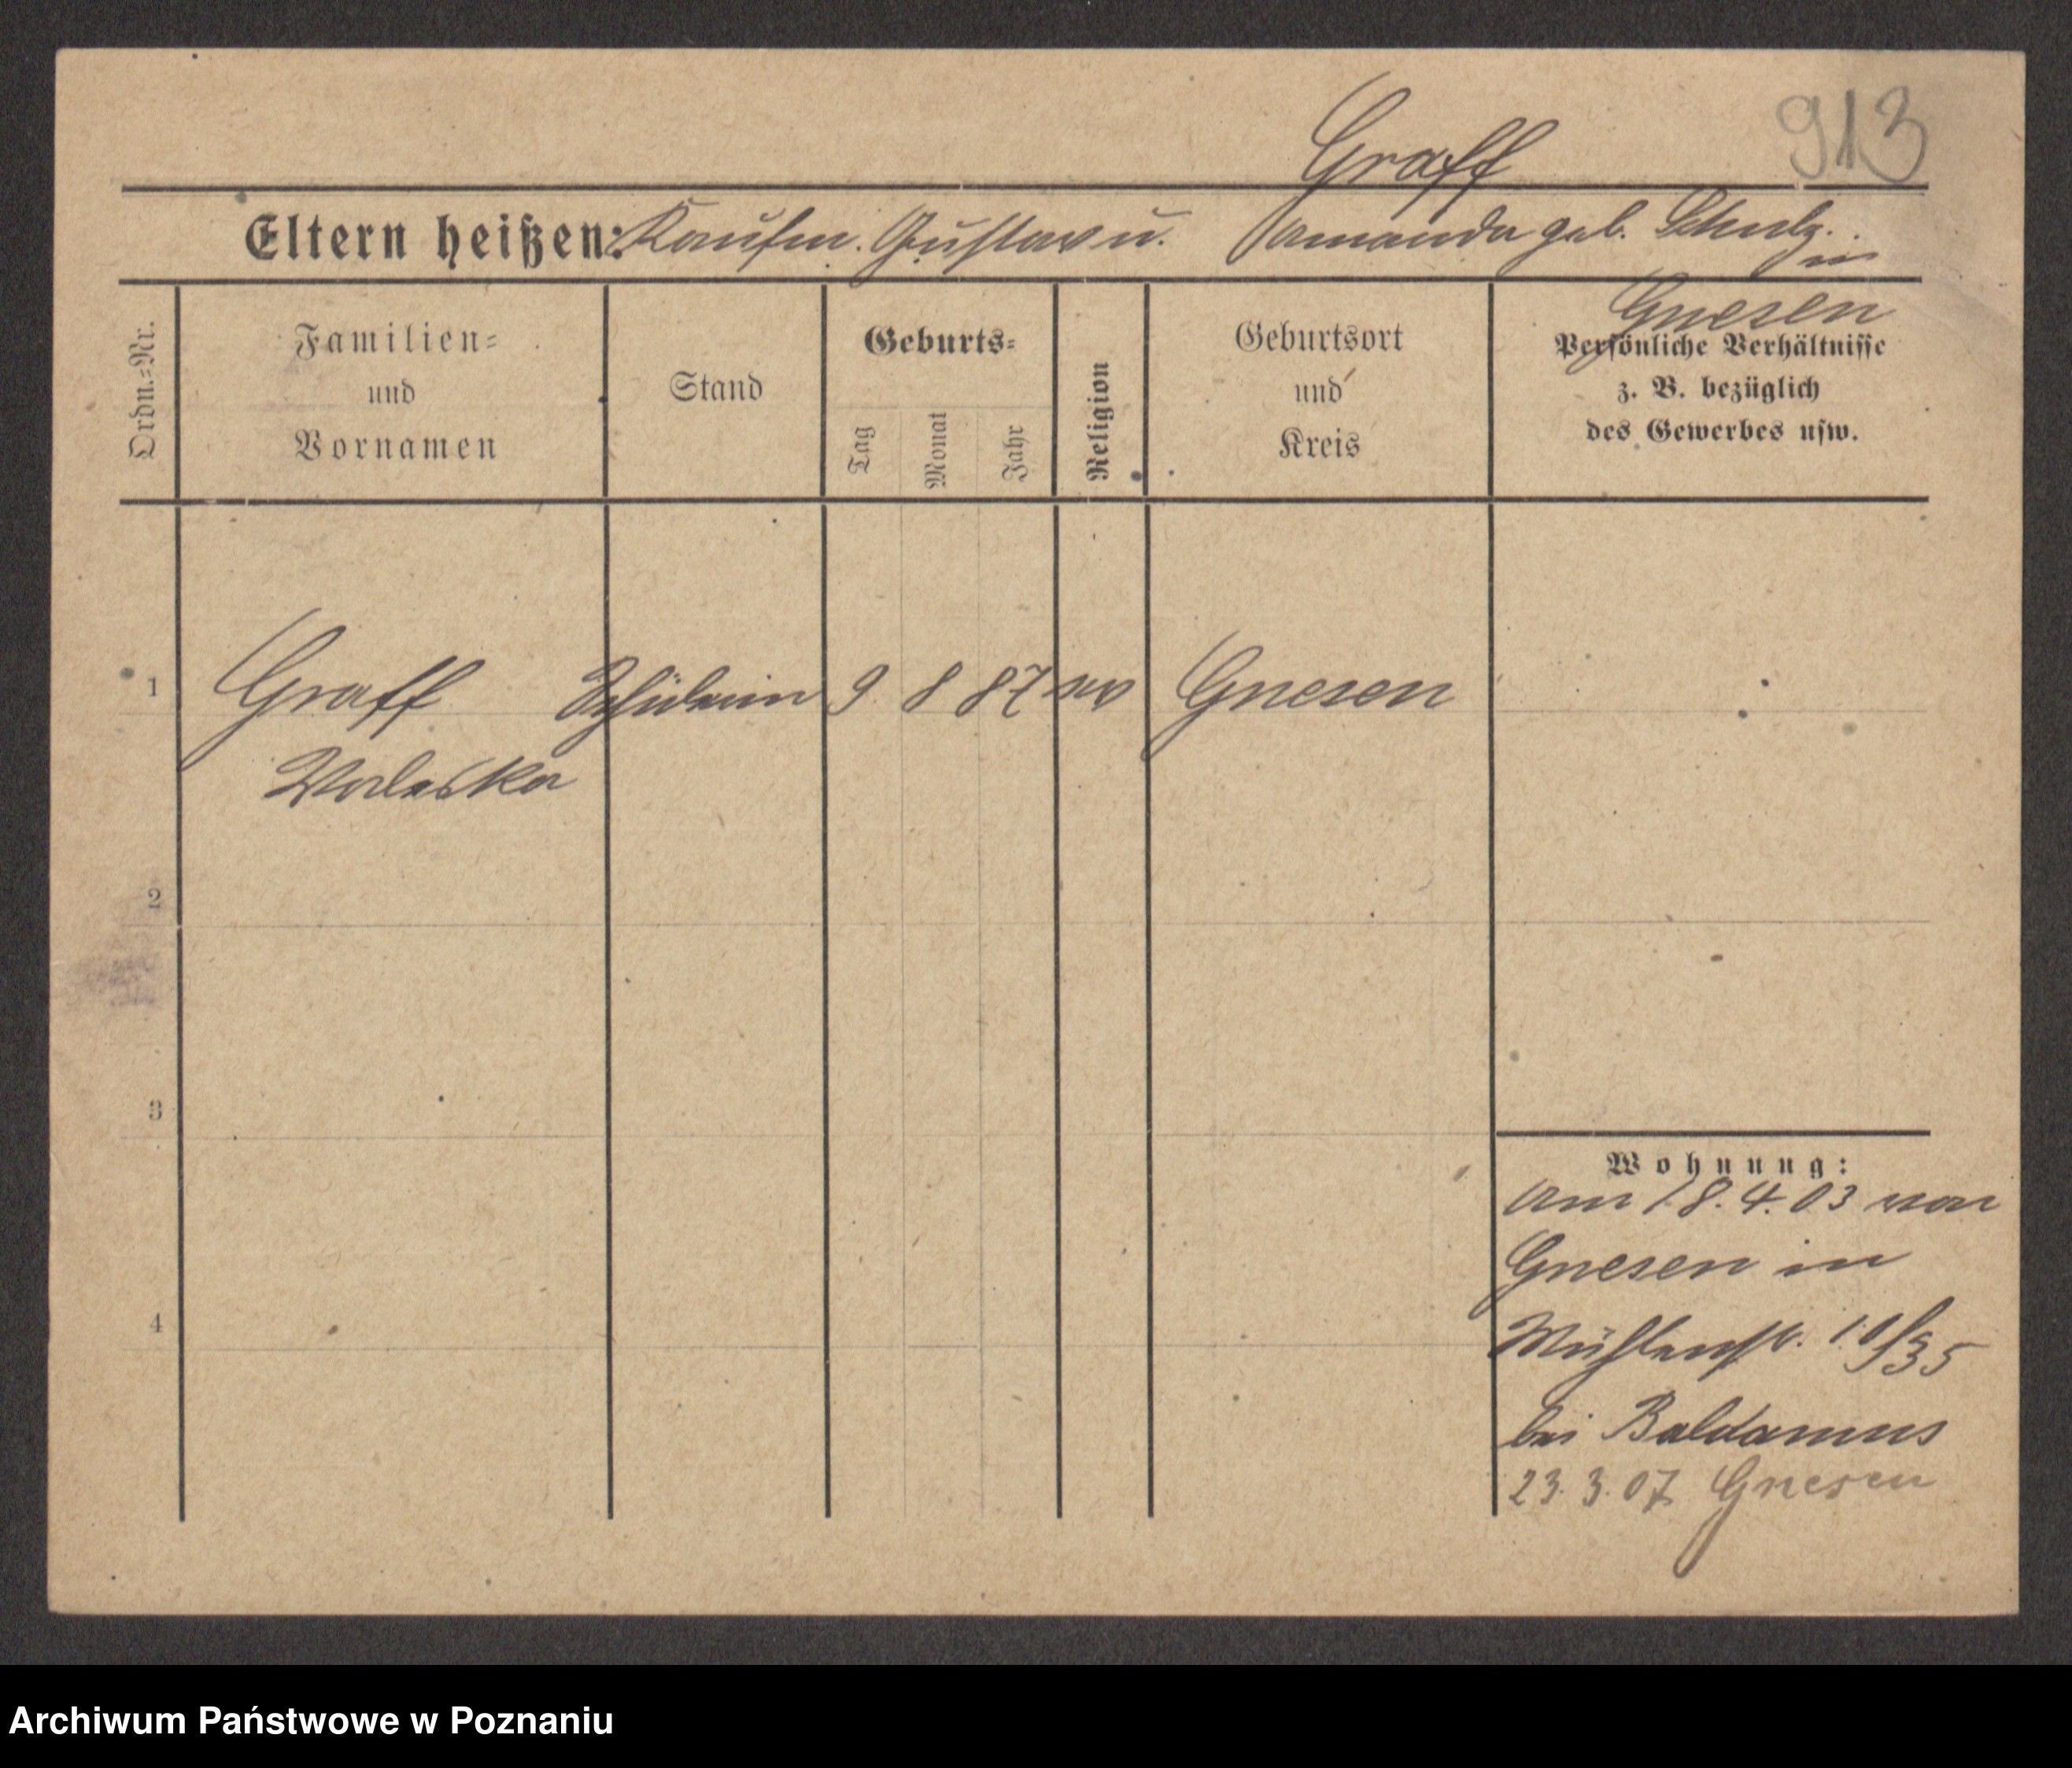 913
Graff
Eltern heißen: Kaufm. Gustav u. Amanda geb. Schulz.
in
Gnesen
Ordn.=Nr.
Familien=
und
Vornamen
Stand
Geburts=
Tag
Monat
Jahr
Religion
Geburtsort
und
Kreis
Persönliche Verhältnisse
z. B. bezüglich
des Gewerbes usw.
1 Graff Schülerin 9 8 87 ev Gnesen
Valeska
2
3
4
Wohnung:
am 18.4.03 von
Gnesen in
Mühlenstr.
bei Baldamus
23.3.07 Gnesen
Archiwum Państwowe w Poznaniu